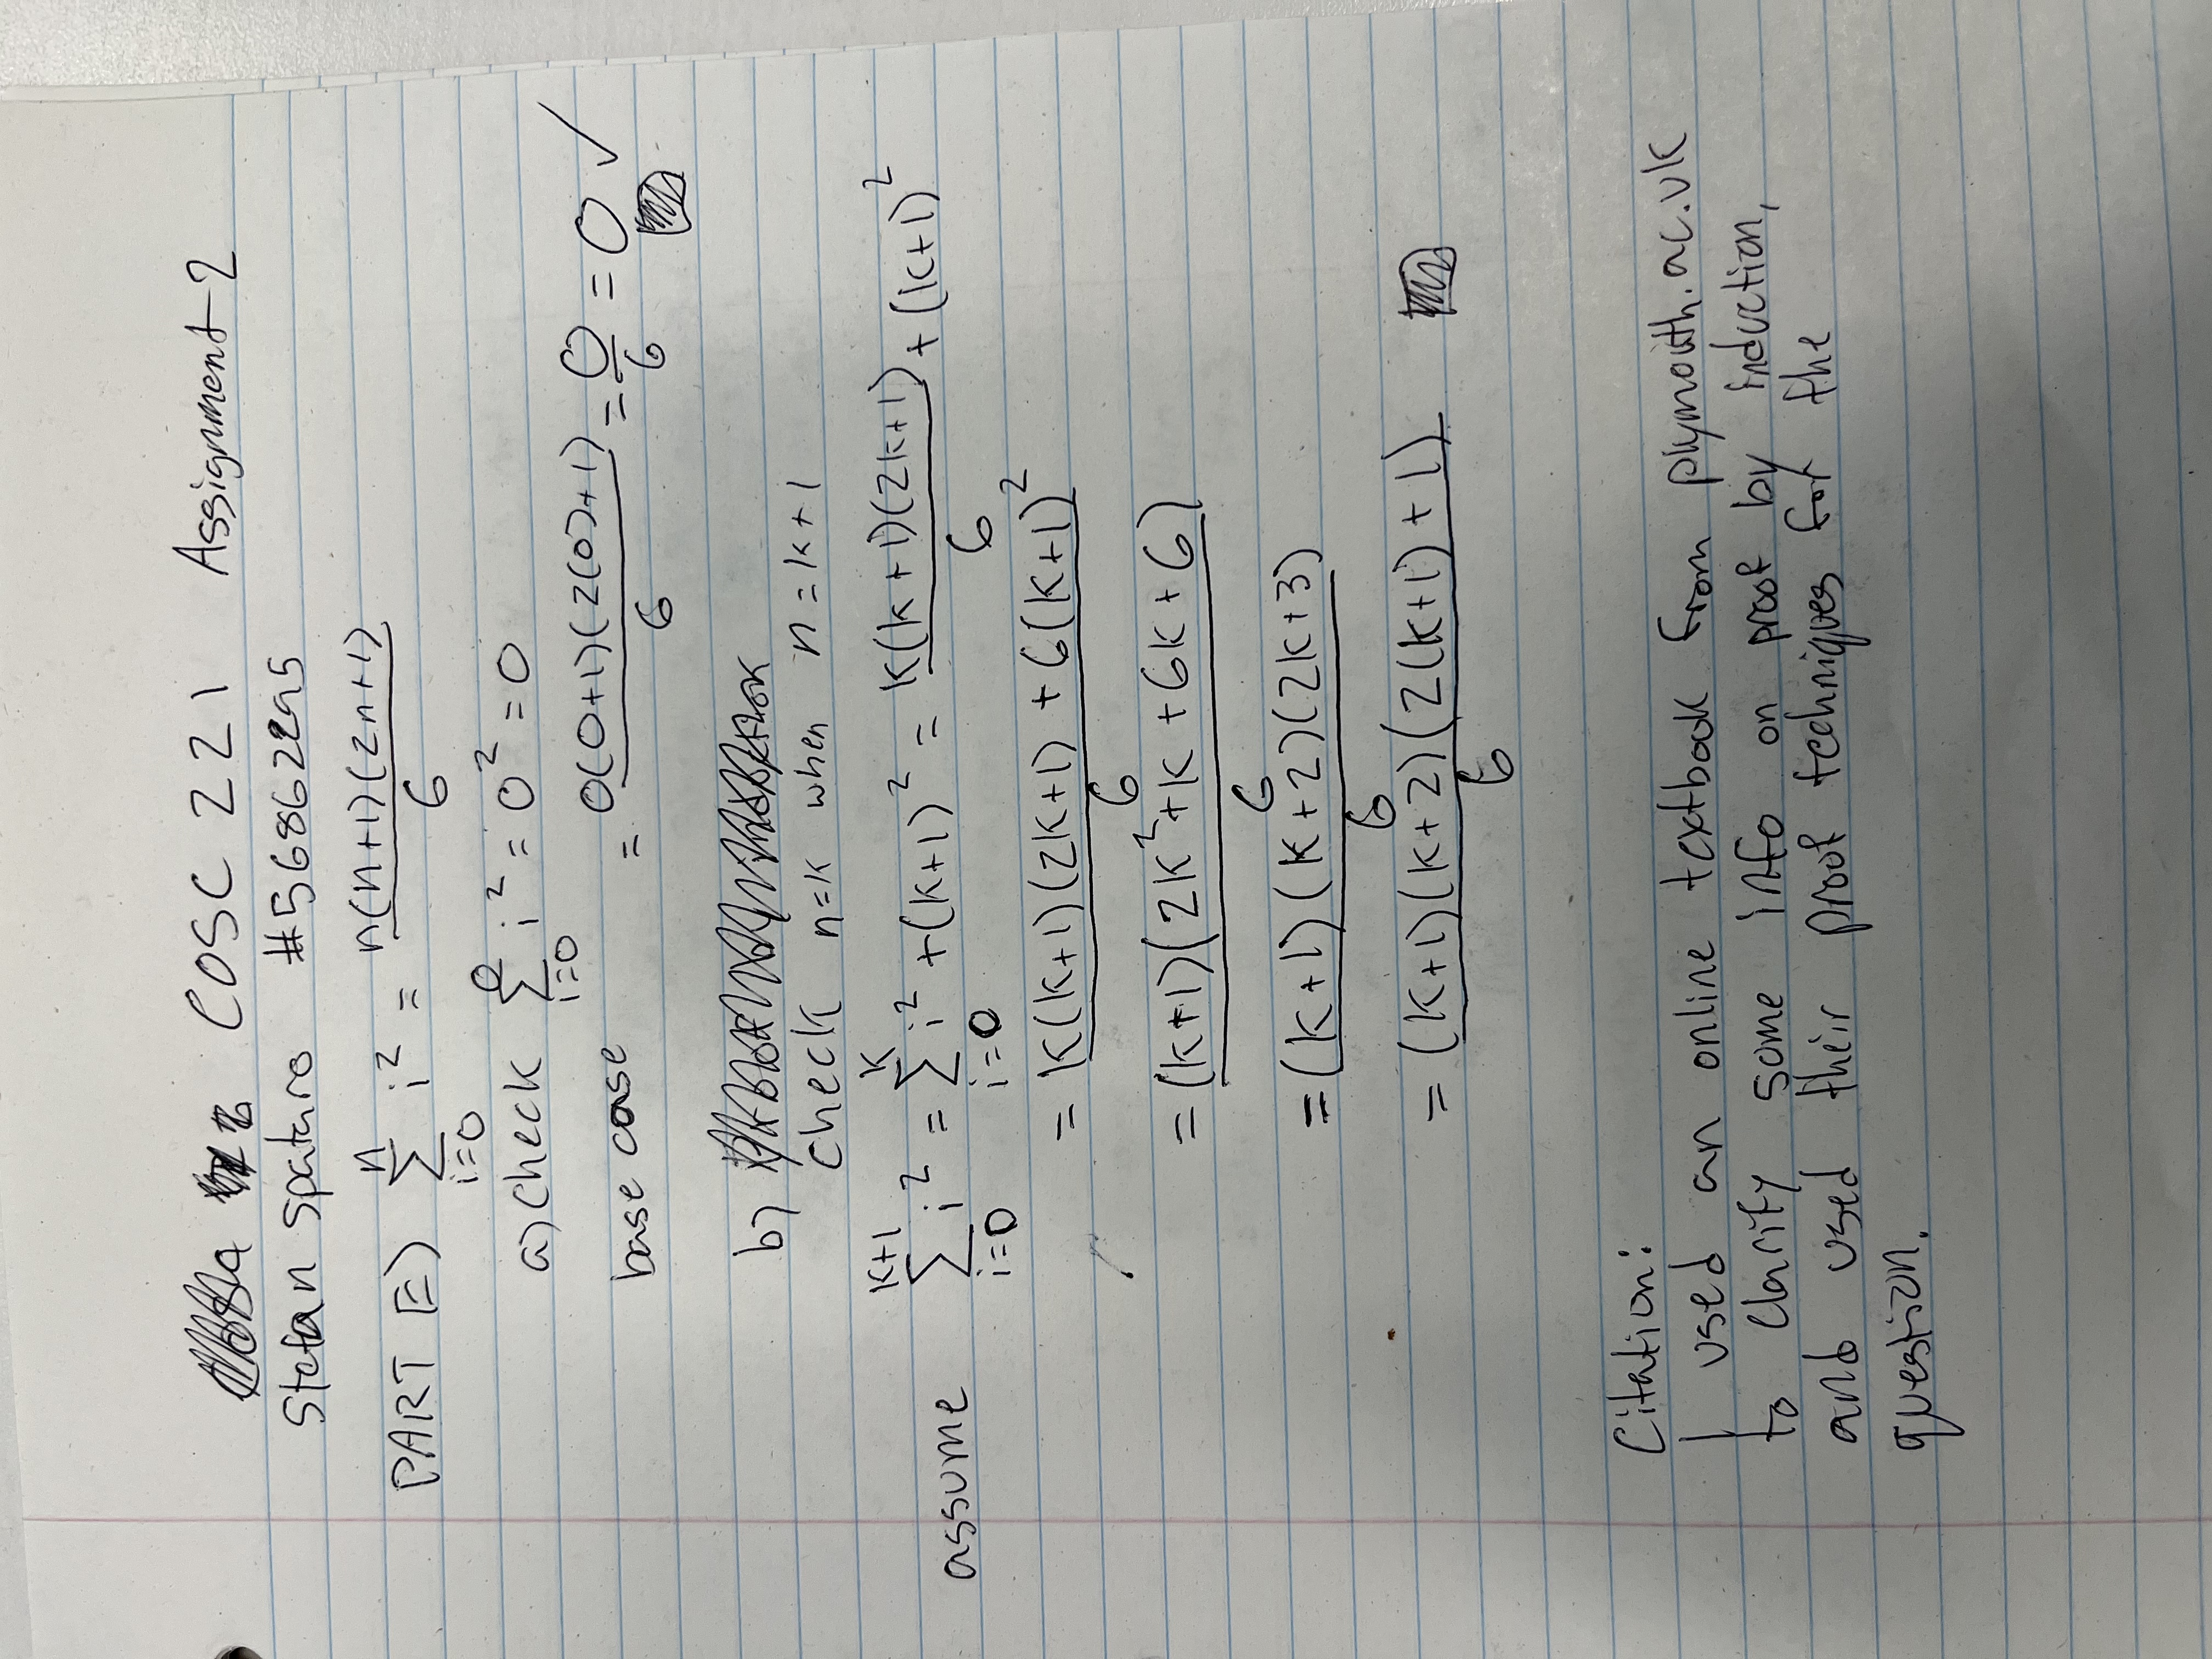 COSC 221 Assignment 2
Stefan Spataro #56862295
PART E) n∑i=0 i² = n(n+1)(2n+1)/6
a) check 0∑i=0 i² = 0² = 0
base case = 0(0+1)(2(0)+1)/6 = 0/6 = 0 ✓
b)
check n=k when n=k+1
assume k+1∑i=0 i² = k∑i=0 i² + (k+1)² = k(k+1)(2k+1)/6 + (k+1)²
= k(k+1)(2k+1) + 6(k+1)²/6
= (k+1)(2k²+k+6k+6)/6
= (k+1)(k+2)(2k+3)/6
= (k+1)(k+2)(2(k+1)+1)/6
Citation:
I used an online textbook from plymouth.ac.uk
to clarify some info on proof by induction,
and used their proof techniques for the
question.